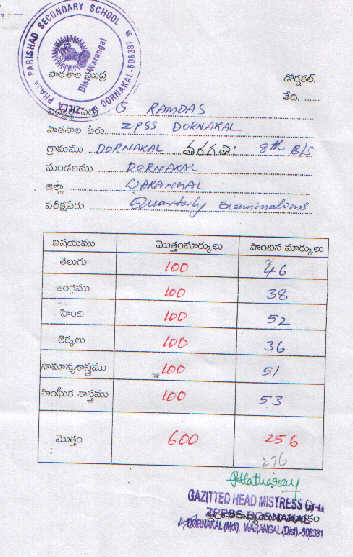 PARISHAD SECONDARY SCHOOL
DORNAKAL-506381
పాఠశాల ముద్ర
డోర్నకల్,
తేది,
G RAMDAS
పాఠశాల పేరు ZPSS DORNAKAL
గ్రామము DORNAKAL తరగతి 8th B/S
మండలము DORNAKAL
జిల్లా WARANGAL
పరీక్షపేరు Quarterly Examinations
విషయము మొత్తంమార్కులు పొందిన మార్కులు
తెలుగు 100 46
ఆంగ్లము 100 38
హింది 100 52
లెక్కలు 100 36
సామాన్యశాస్త్రము 100 51
సాంఘీక శాస్త్రము 100 53
మొత్తం 600 256
276
GAZITTED HEAD MISTRESS Gr-II
ZPSS DORNAKAL
DORNAKAL (Md), WARANGAL (Dist)-506381